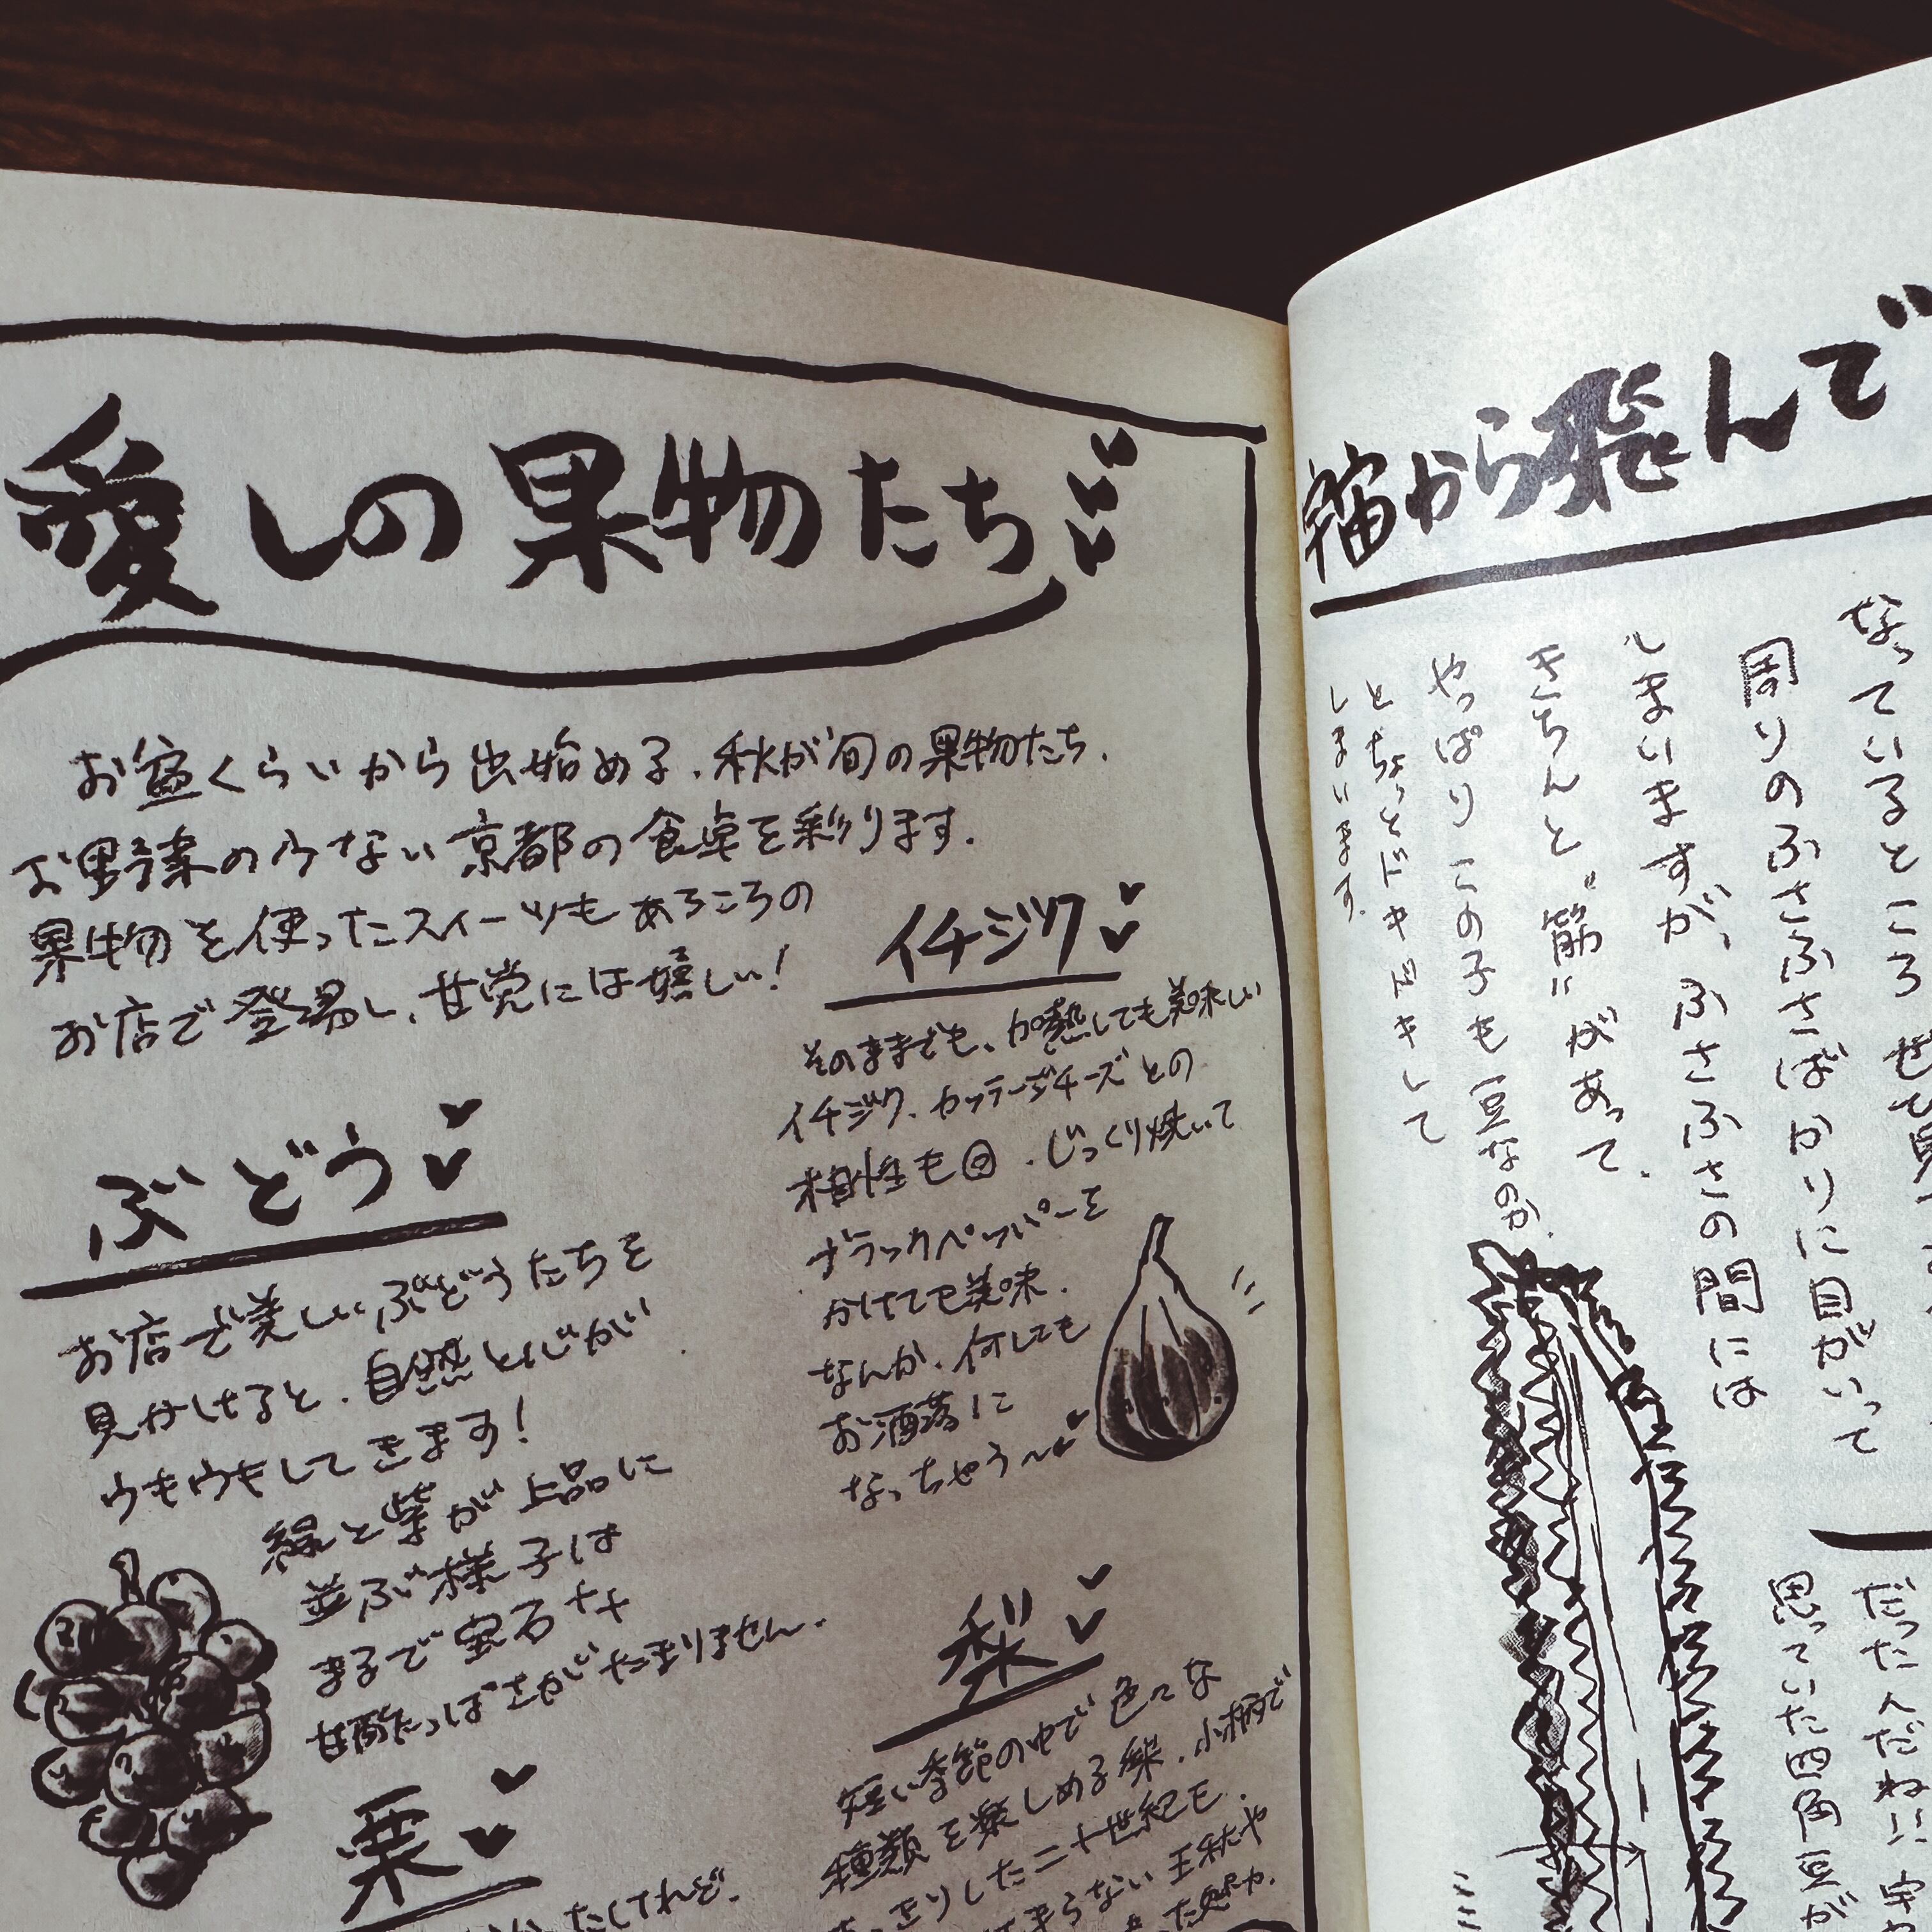 愛しの果物たち
お盆くらいから出始める、秋が旬の果物たち。
お野菜の少ない京都の食卓を彩ります。
果物を使ったスイーツもあちこちの
お店で登場し、甘党には嬉しい!
ぶどう
お店で美しいぶどうたちを
見かけると、自然と心が
ウキウキしてきます!
緑と紫が上品に
並ぶ様子は
まるで宝石
甘酸っぱさがたまりません。
栗
イチジク
そのままでも、加熱しても美味しい
イチジク。カッテージチーズとの
相性も◎。じっくり焼いて
ブラックペッパーを
かけても美味。
なんか、何しても
お洒落に
なっちゃう〜
梨
短い季節の中で色々な
種類を楽しめる梨。小柄で
さっきりした二十世紀も、
まらない王秋や
から飛んで
なっているところ
周りのふさふさばかりに目がいって
しまいますが、ふさふさの間には
きちんと"筋"があって、
やっぱりこの子も豆なのか、
とちょっとドキドキして
しまいます。
だったんだね!!
思っていた四角豆が